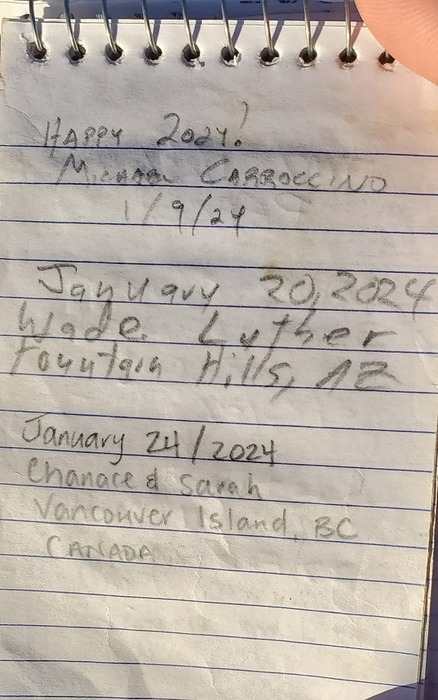 HAPPY 2024!
MICHAEL CARROCCINO
1/9/24
January 20, 2024
Wade Luther
Fountain Hills, AZ
January 24/2024
Chanace & Sarah
Vancouver Island, BC
CANADA